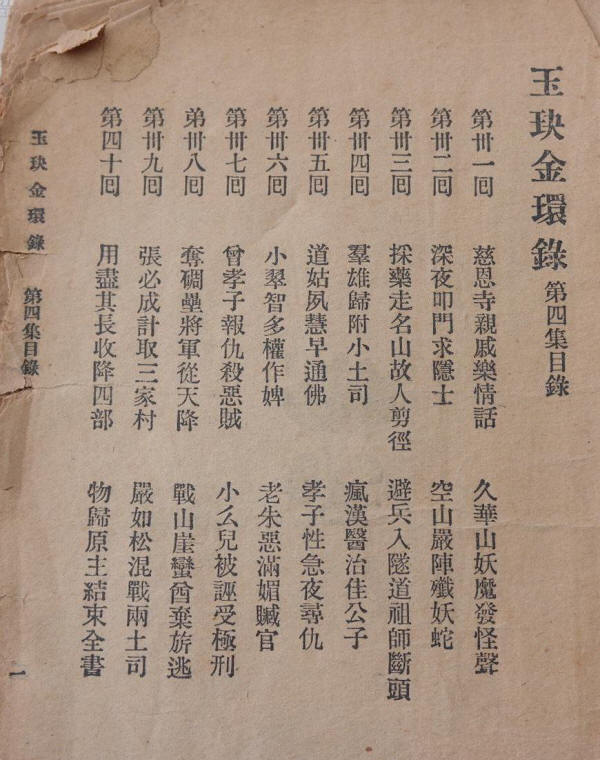 玉玦金環錄 第四集目錄
第卅一回 慈恩寺親戚樂情話 久華山妖魔發怪聲
第卅二回 深夜叩門求隱士 空山嚴陣殲妖蛇
第卅三回 採藥走名山故人剪徑 避兵入隧道祖師斷頭
第卅四回 羣雄歸附小土司 瘋漢醫治佳公子
第卅五回 道姑夙慧早通佛 孝子性急夜尋仇
第卅六回 小翠智多權作婢 老朱惡滿媚贓官
第卅七回 曾孝子報仇殺惡賊 小么兒被誣受極刑
弟卅八回 奪碉壘將軍從天降 戰山崖蠻酋棄旂逃
第卅九回 張必成計取三家村 嚴如松混戰兩土司
第四十回 用盡其長收降四部 物歸原主結束全書
玉玦金環錄 第四集目錄 一